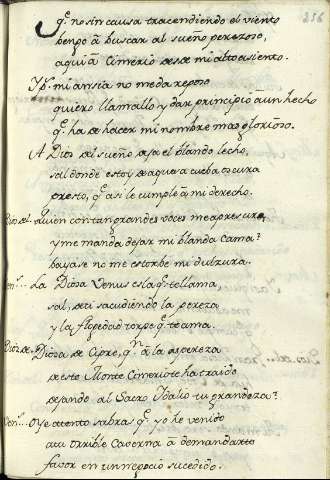 256
q.̃ no sin causa tracendiendo el viento
bengo ã buscar al sueño perezoso,
aqui ã Cimerio desde mi alto asiento.
mi ansia no me da reposo
quiero llamallo y dar principio ã un hecho
q.̃ ha de hacer mi nombre mas glorioso.
A Dios del sueño deja el blando lecho,
sal donde estoy de aquesa cueba oscura
presto, q.̃ asi le cumple ã mi derecho.
Dios del. quien con tan grandes voces me apresura,
y me manda dejar mi blanda cama?
bayase no me estorbe mi dulzura.
Ven... La Diosa Venus es la q.̃ te llama,
sal, de ti sacudiendo la pereza
y la flogedad torpe q.̃ te ama.
Dios de. Diosa de Cipre, q.n ã la aspereza
de este Monte Cimerio te ha traido
dejando al Sacro Idalio tu grandeza?
Ven... oye atento sabras q.̃ yo he venido
a tu terrible Caverna ã demandarte
favor en un negocio sucedido.